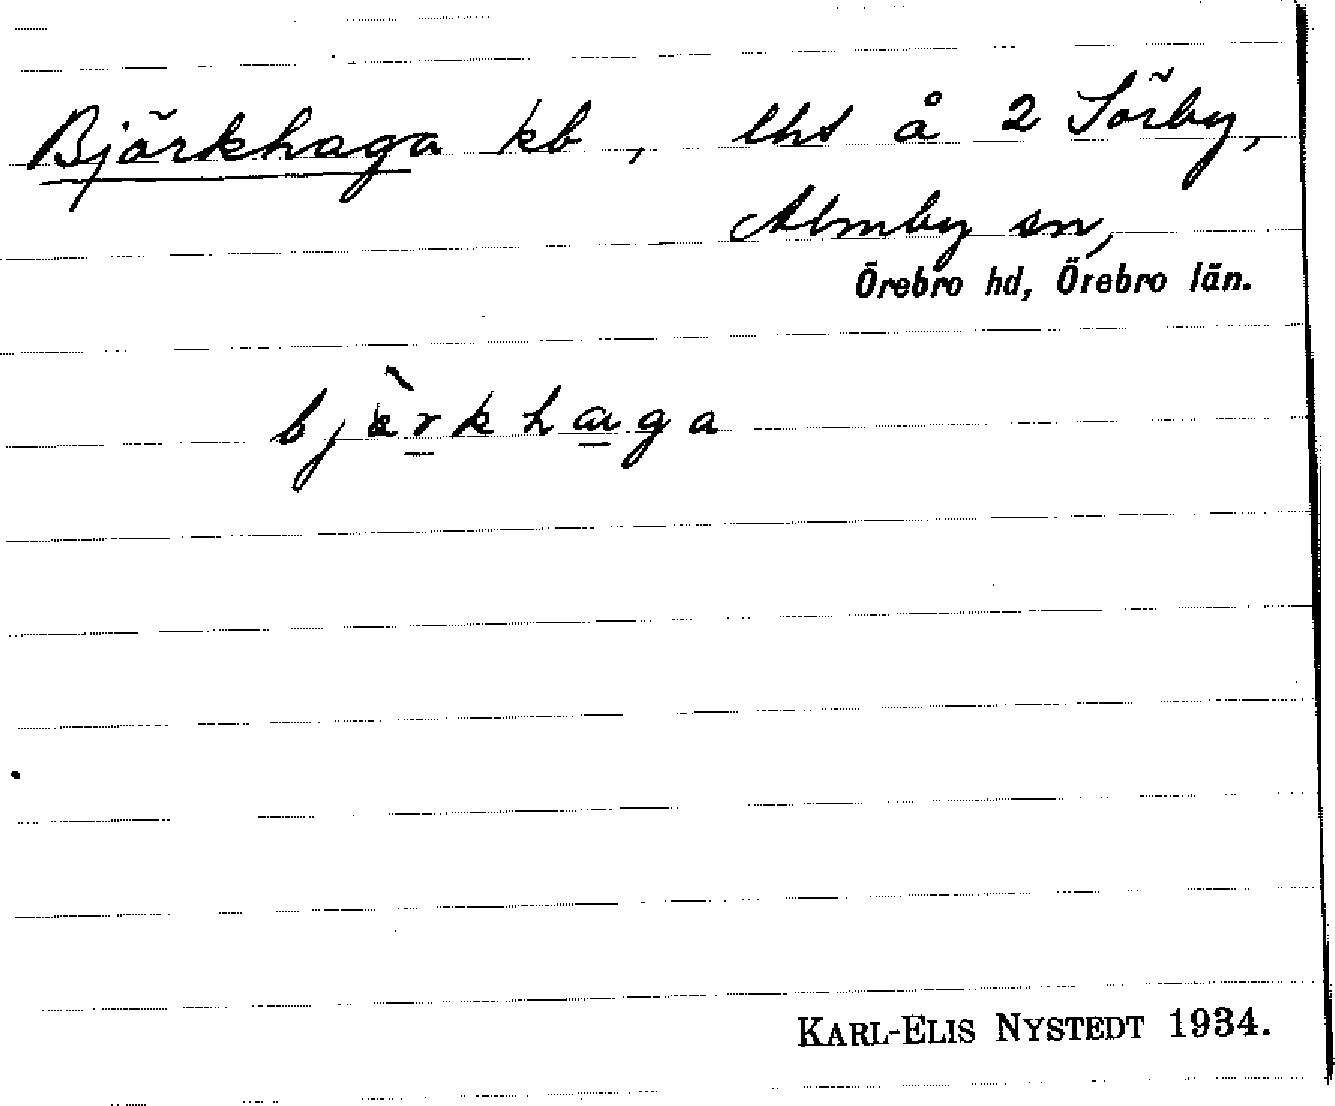 Björkhaga kb, lhs å 2 Sörby,
Almby sn,
Örebro hd, Örebro län.
bjàrkhaga
KARL-ELIS NYSTEDT 1934.